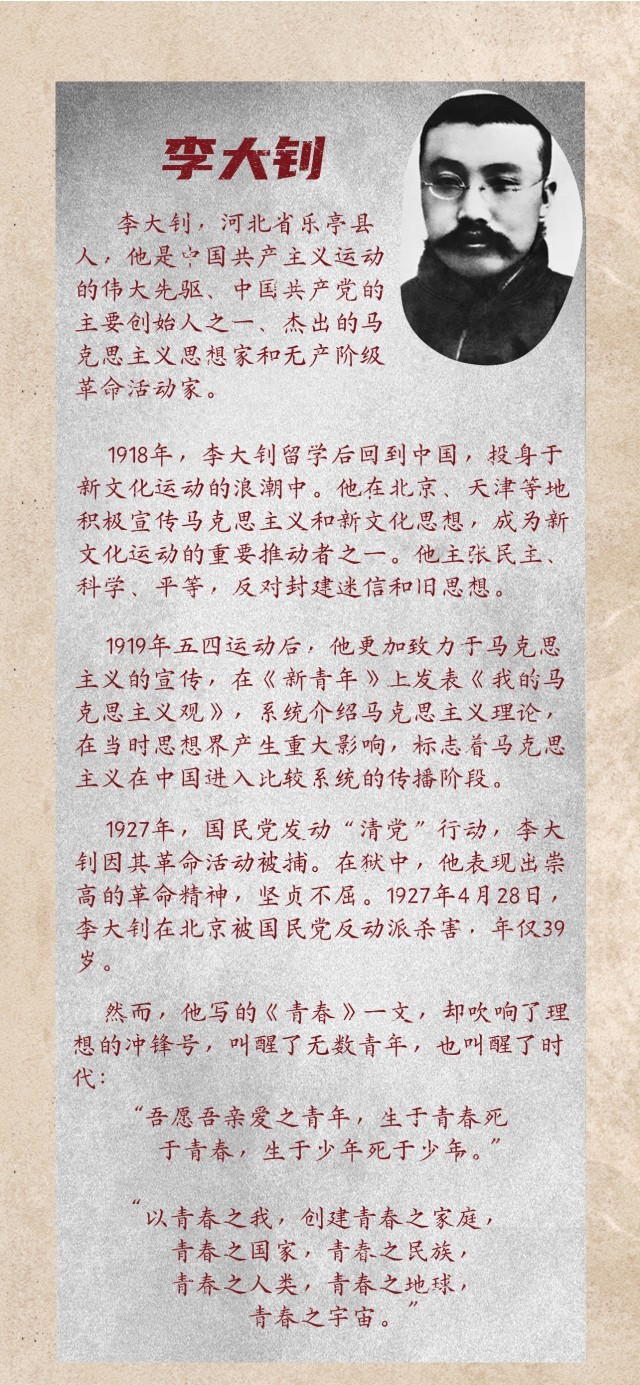 李大钊
李大钊，河北省乐亭县
人，他是中国共产主义运动
的伟大先驱、中国共产党的
主要创始人之一、杰出的马
克思主义思想家和无产阶级
革命活动家。
1918年，李大钊留学后回到中国，投身于
新文化运动的浪潮中。他在北京、天津等地
积极宣传马克思主义和新文化思想，成为新
文化运动的重要推动者之一。他主张民主、
科学、平等，反对封建迷信和旧思想。
1919年五四运动后，他更加致力于马克思
主义的宣传，在《新青年》上发表《我的马
克思主义观》，系统介绍马克思主义理论，
在当时思想界产生重大影响，标志着马克思
主义在中国进入比较系统的传播阶段。
1927年，国民党发动“清党”行动，李大
钊因其革命活动被捕。在狱中，他表现出崇
高的革命精神，坚贞不屈。1927年4月28日，
李大钊在北京被国民党反动派杀害，年仅39
岁。
然而，他写的《青春》一文，却吹响了理
想的冲锋号，叫醒了无数青年，也叫醒了时
代：
“吾愿吾亲爱之青年，生于青春死
于青春，生于少年死于少年。”
“以青春之我，创建青春之家庭，
青春之国家，青春之民族，
青春之人类，青春之地球，
青春之宇宙。”